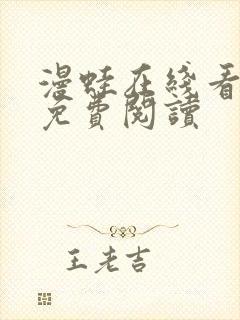 漫蛙在綫看
免費閱讀
王老吉